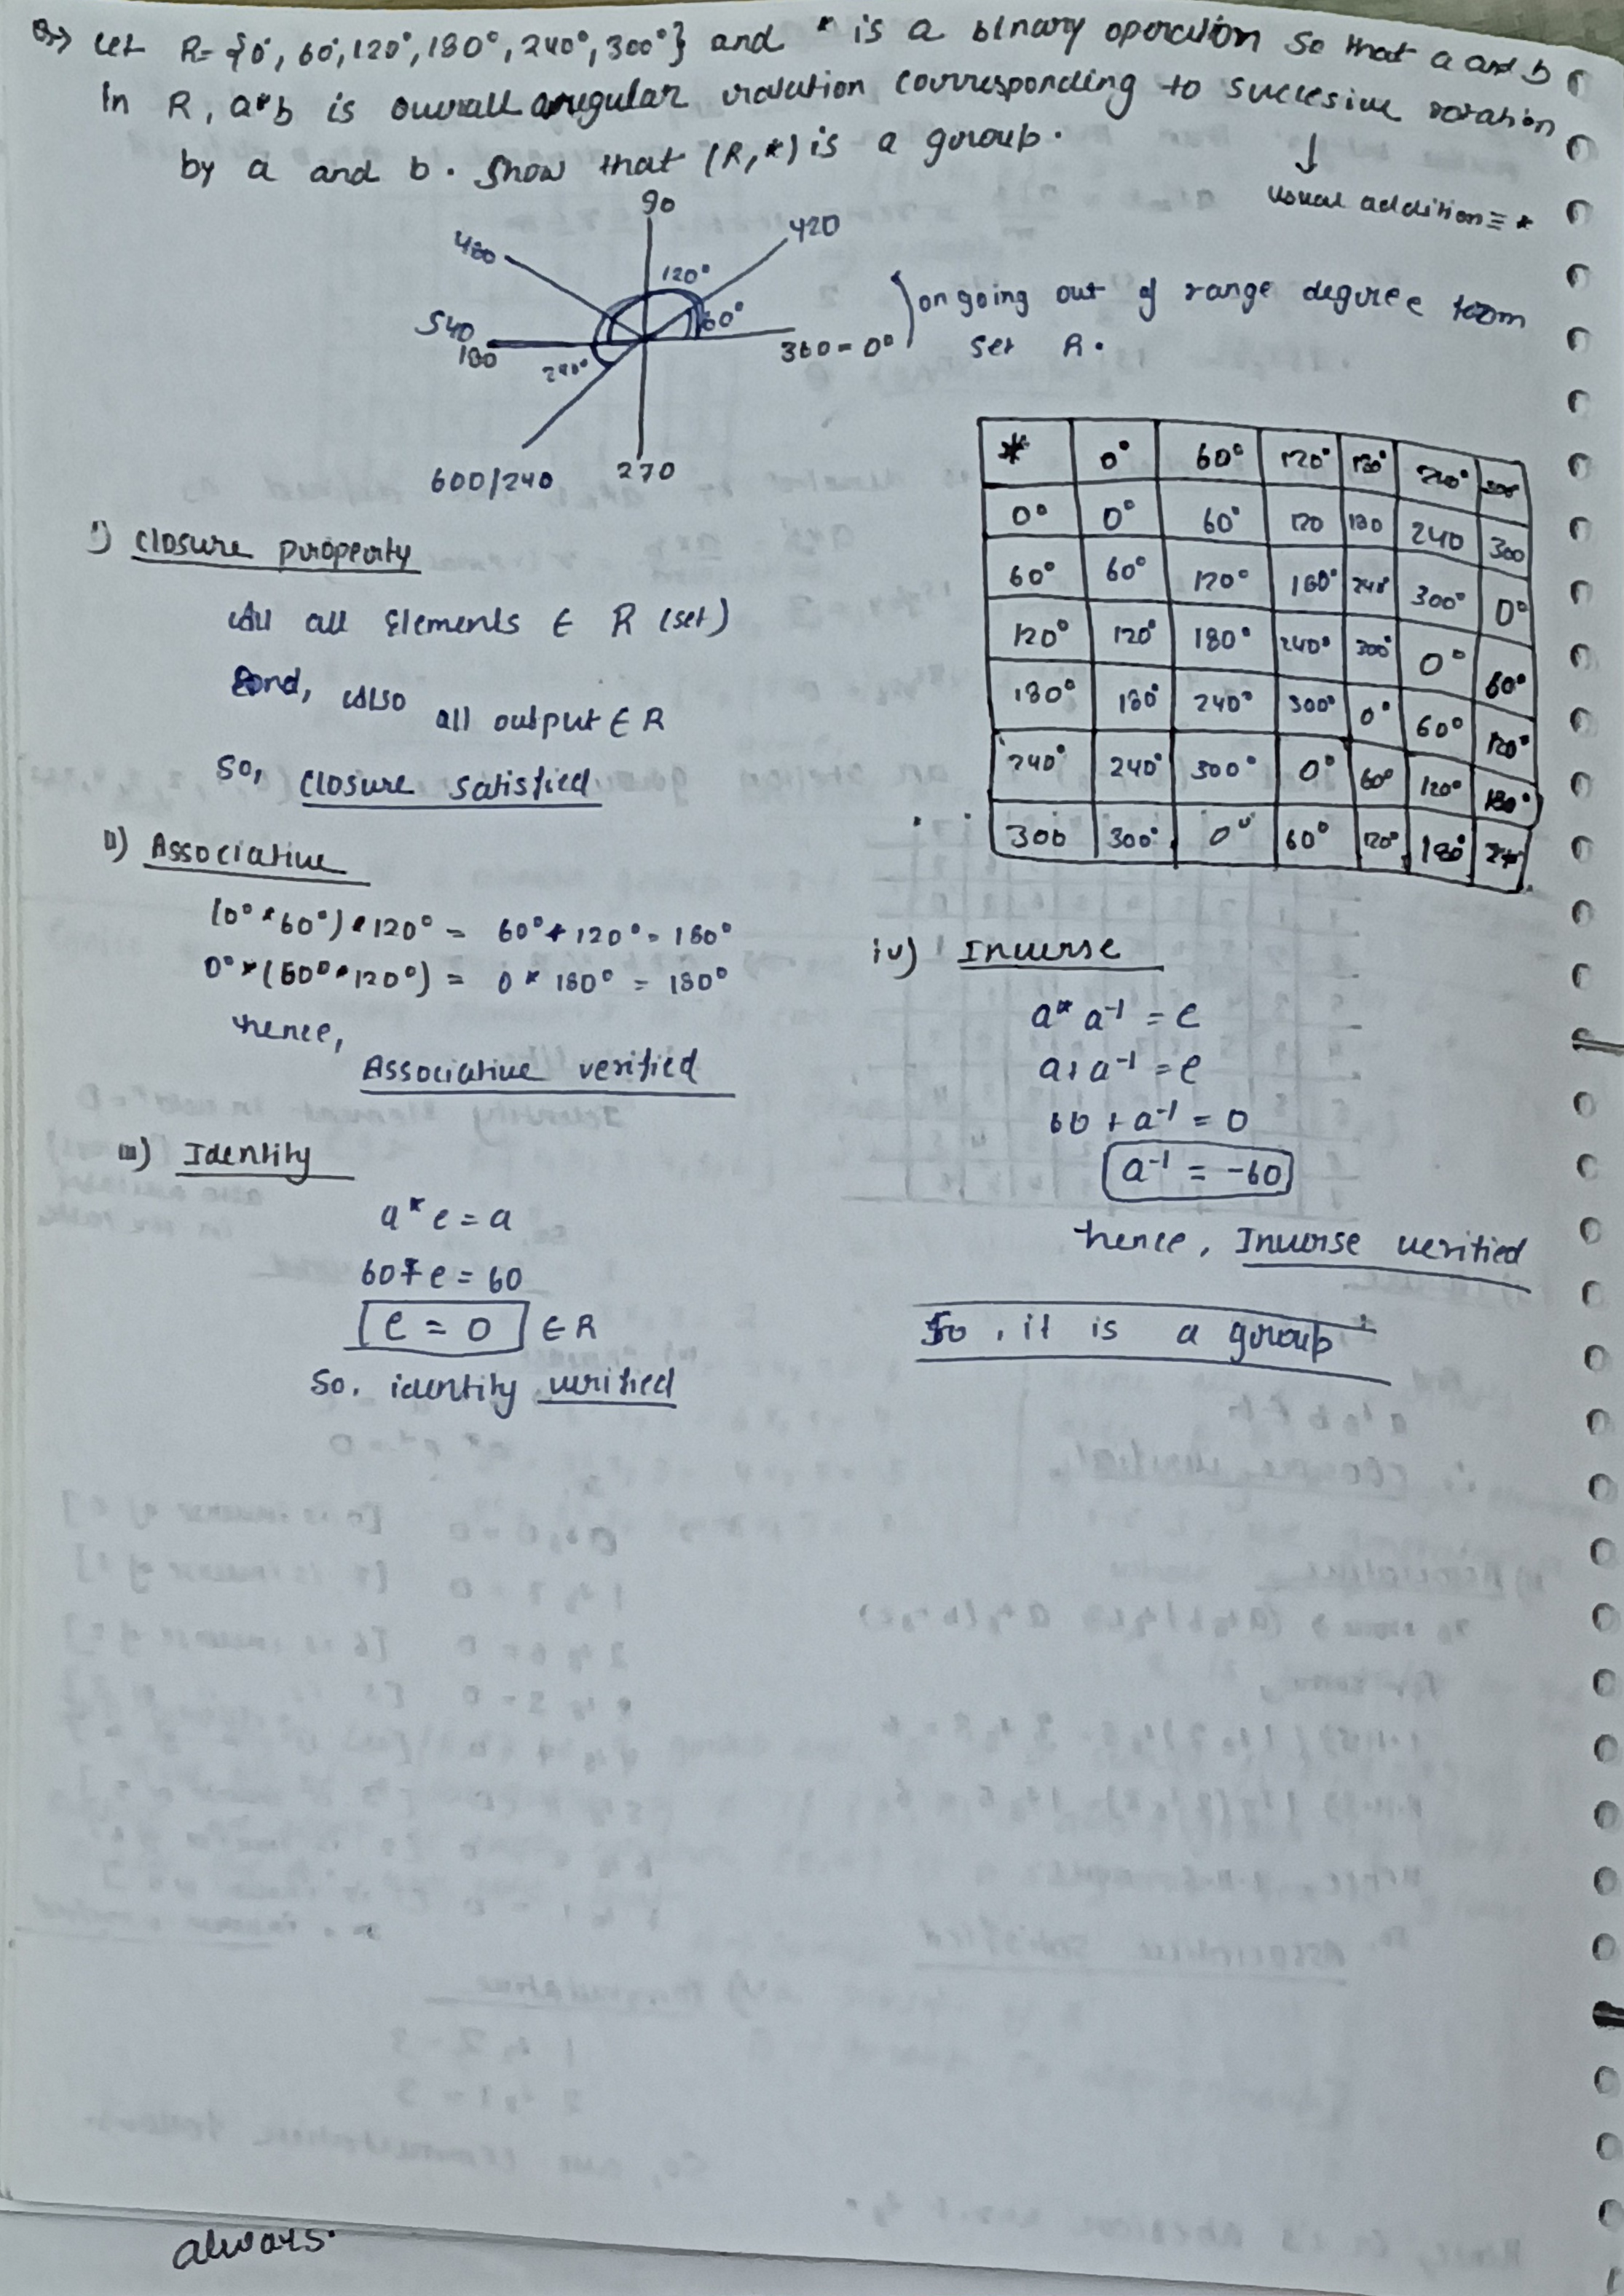 Q.) Let R= {0°, 60°, 120°, 180°, 240°, 300°} and * is a binary operation So that a and b
In R, a*b is overall angular rotation corresponding to succesive rotation
by a and b. Show that (R,*) is a group.
↓
usual addition ≡ *
90
480
420
120°
60°
540
180
360 = 0°
240°
600/240
270
on going out of range degree from
set R.
* 0° 60° 120° 180° 240° 300
0° 0° 60° 120 180 240 300
60° 60° 120° 180° 240 300° 0°
120° 120° 180° 240° 300° 0° 60°
180° 180° 240° 300° 0° 60° 120°
240° 240° 300° 0° 60° 120° 180°
300 300° 0° 60° 120° 180° 240
i) Closure property
all Elements ∈ R (set)
And, also all output ∈ R
So, closure satisfied
ii) Associative
(0° * 60°) * 120° = 60° + 120° = 180°
0° * (60° * 120°) = 0 * 180° = 180°
hence,
Associative verified
iii) Identity
a * e = a
60 + e = 60
e = 0 ∈ R
So, identity verified
iv) Inverse
a * a⁻¹ = e
a + a⁻¹ = e
60 + a⁻¹ = 0
a⁻¹ = -60
hence, Inverse verified
So, it is a group
always.